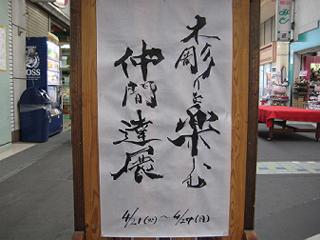 木彫りを楽しむ
仲間達展
4/21(火)～4/27(月)
BOSS